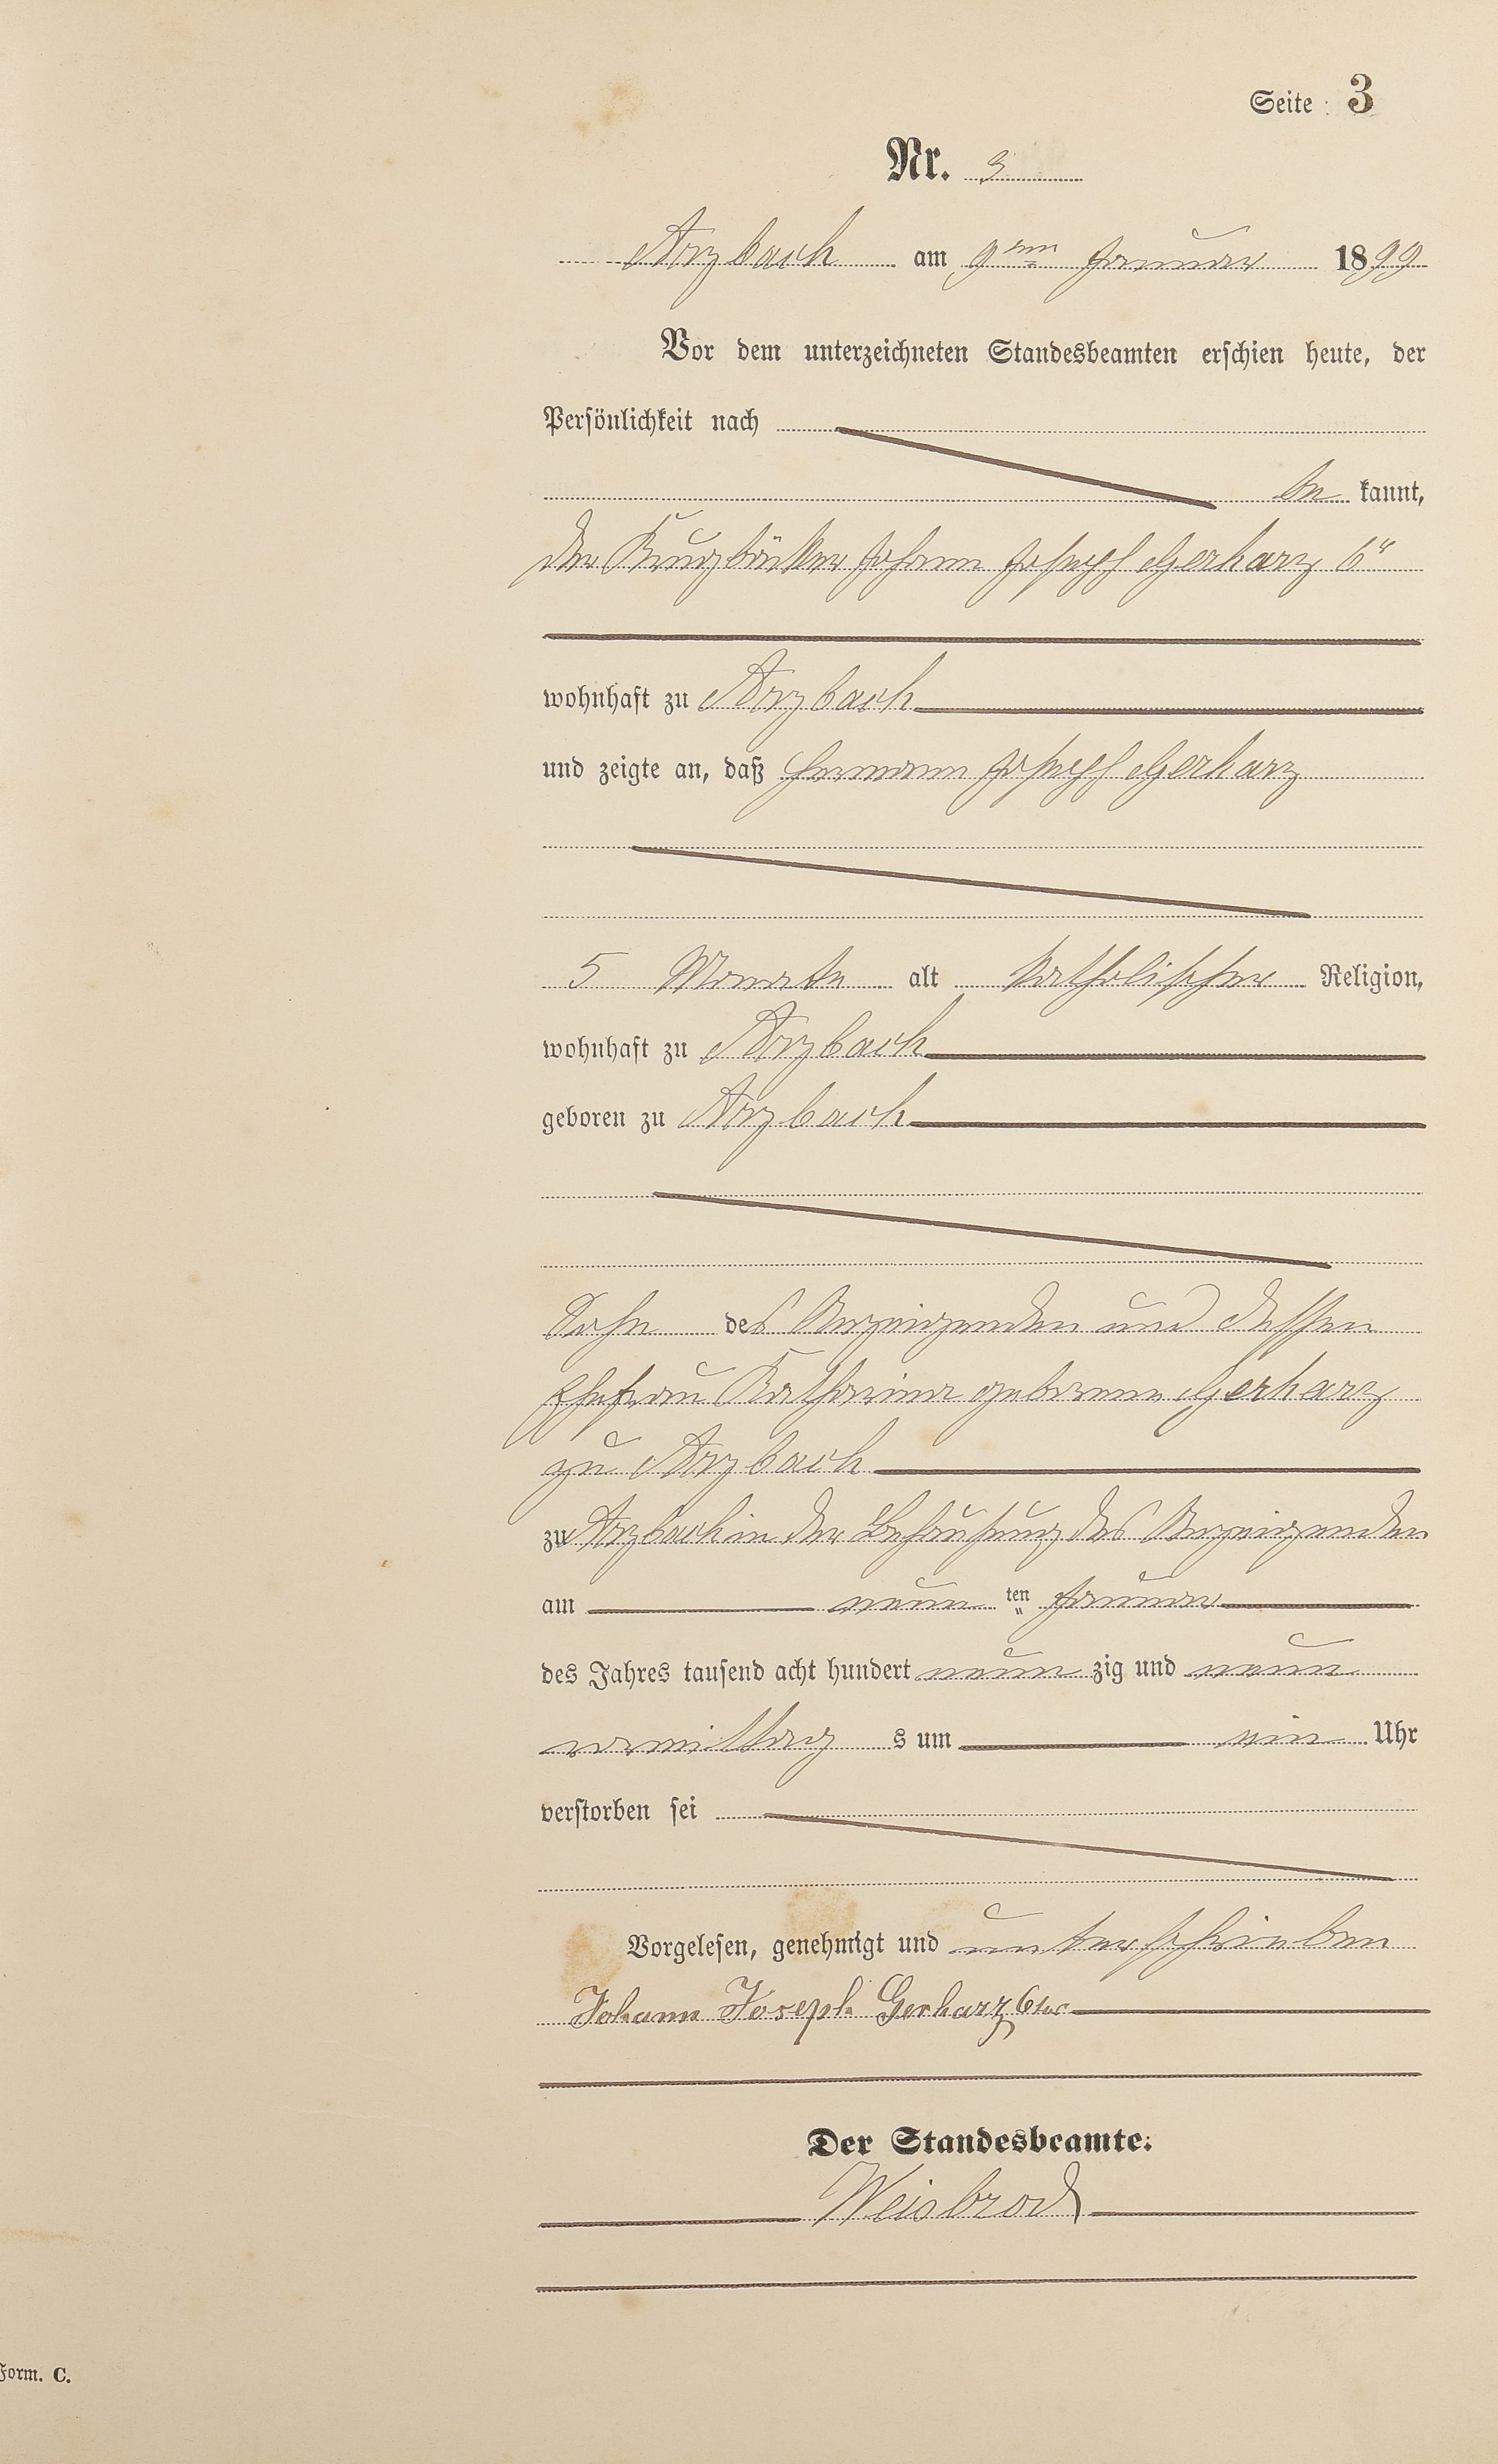 Seite: 3
Nr. 3
Arzbach am 9ten Januar 1899
Vor dem unterzeichneten Standesbeamten erschien heute, der
Persönlichkeit nach
be kannt,
der Krugbäcker Johann Joseph Gerharz 6r
wohnhaft zu Arzbach
und zeigte an, daß Hermann Joseph Gerharz
5 Monate alt katholischer Religion,
wohnhaft zu Arzbach
geboren zu Arzbach
Sohn des Anzeigenden und dessen
Ehefrau Katharina geborene Gerharz
zu Arzbach
zu Arzbach in der Behausung des Anzeigenden
am neun ten Januar
des Jahres tausend acht hundert neun zig und neun
vormittag s um ein Uhr
verstorben sei
Vorgelesen, genehmigt und unterschrieben
Johann Joseph Gerharz 6ter
Der Standesbeamte:
Weisbrod
Form. C.